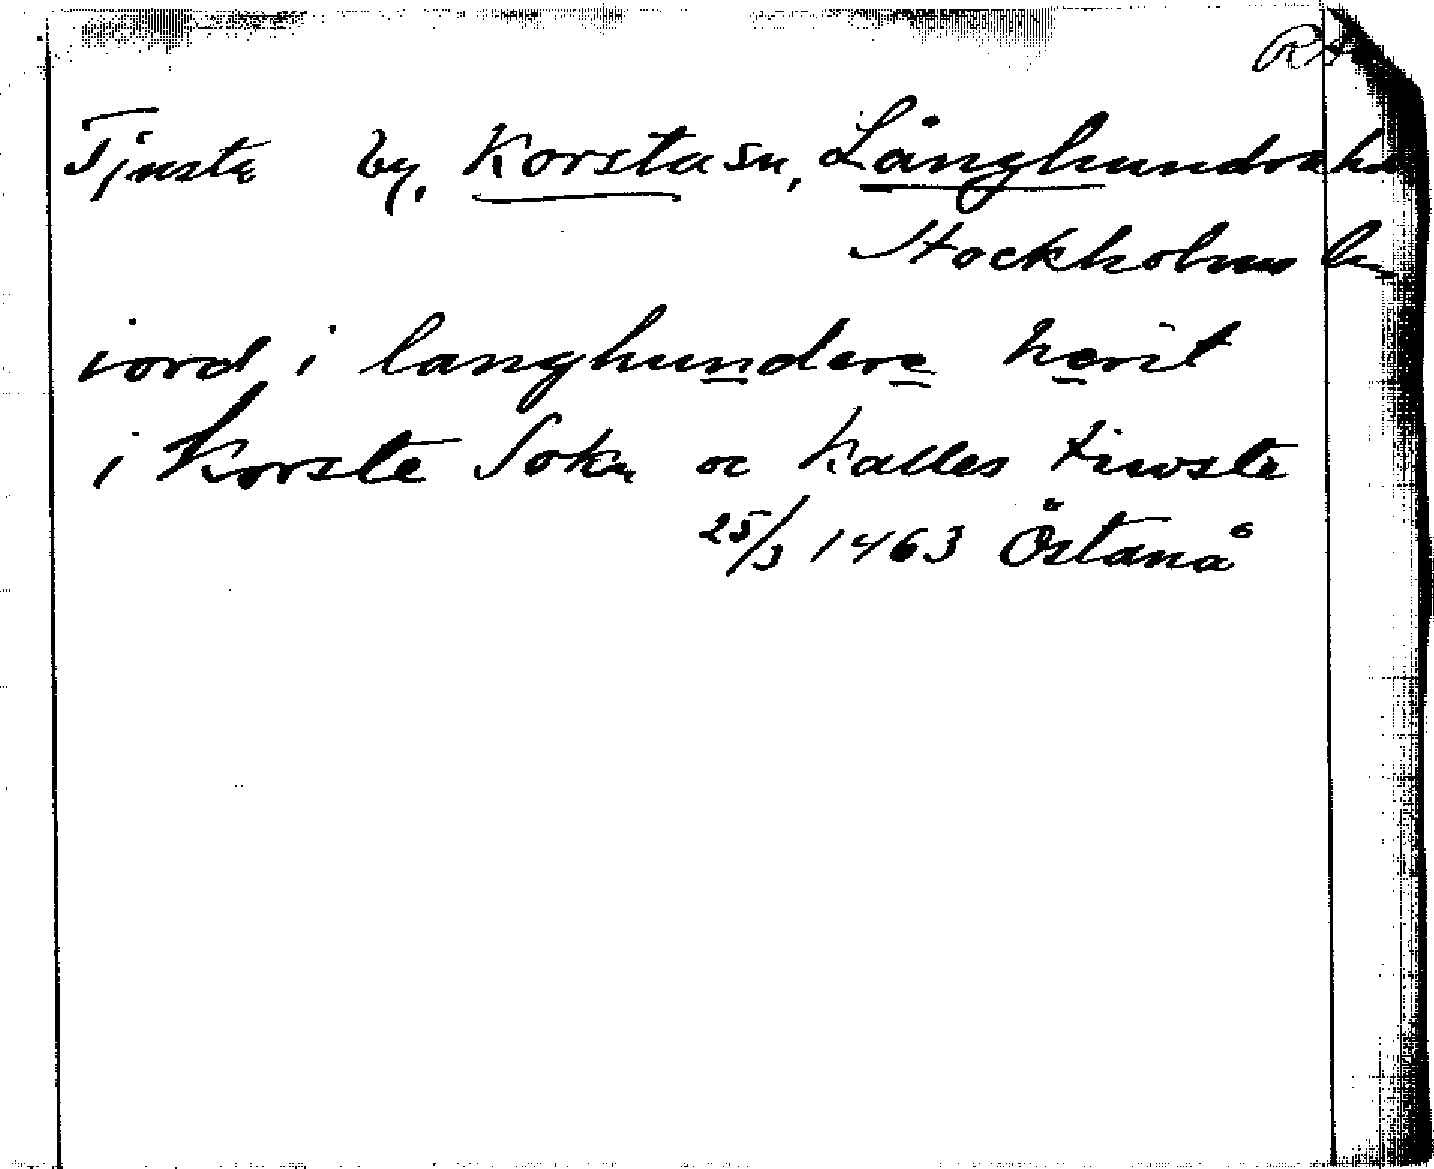 Tjusta by, Korsta sn, Långhundra hd
Stockholms län
iord i langhundere herit
i korste Sokn oc kalles tiwste
25/3 1463 Östanå